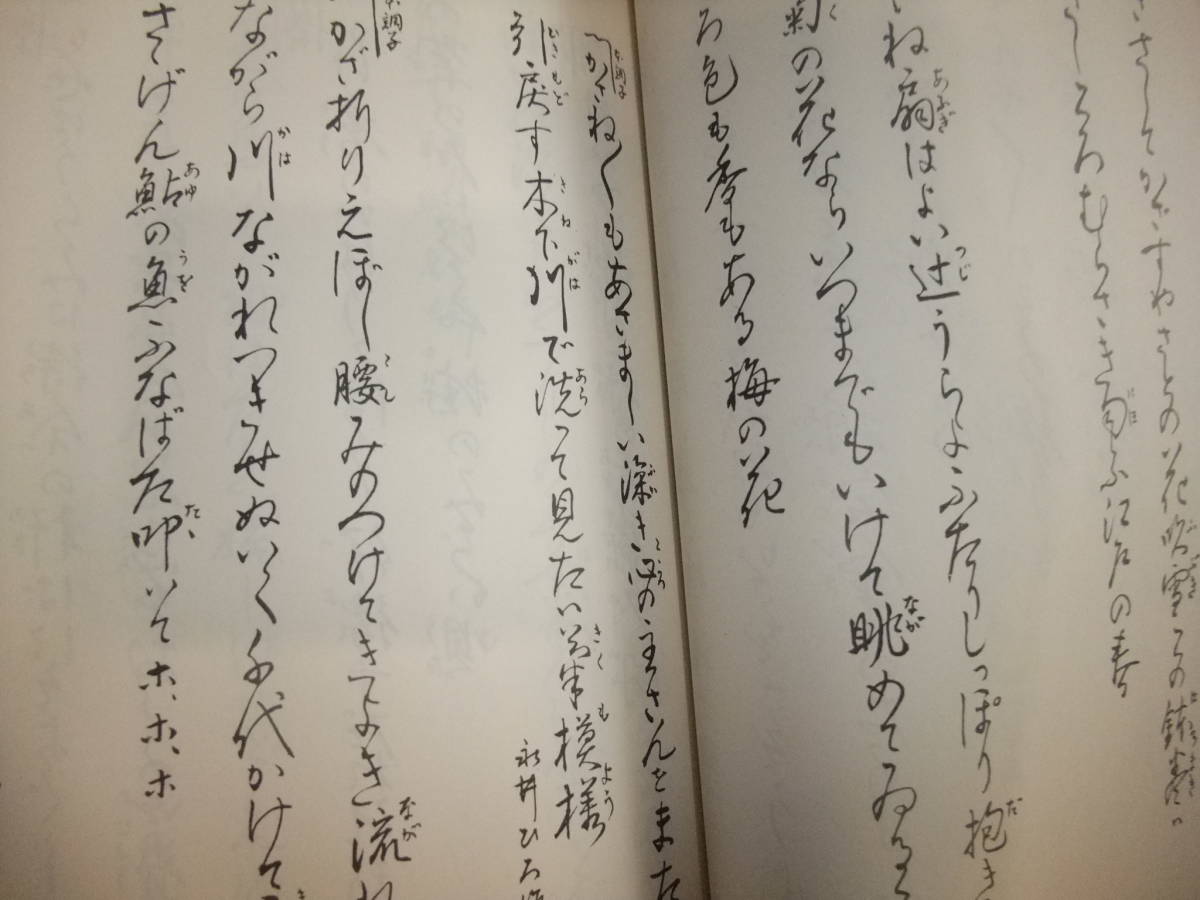 さしてかざすやさとの花吹雪
しころむらさき匂ふ江戸の春
ね扇はよい辻うらよふたりしっぽり抱き
菊の花ならいつまでもいけて眺めてゐる
ろ色も香もある梅の花
本調子
かさね〲もあさましい深き心の主さんをまた
引戻す木下川で洗って見たい菊模様
永井ひろ作
本調子
かざ折りえぼし腰みのつけてきよき流れ
ながら川ながれつきせぬいく千代かけて
さゝげん鮎の魚ふなばた叩いてホ、ホ、ホ